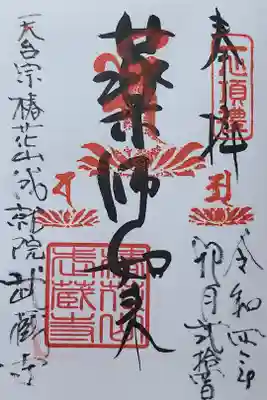 奉拝
一心頂禮
令和四年
卯月弐拾日
薬師如来
天台宗椿花山成就院武蔵寺
椿花山
武蔵寺